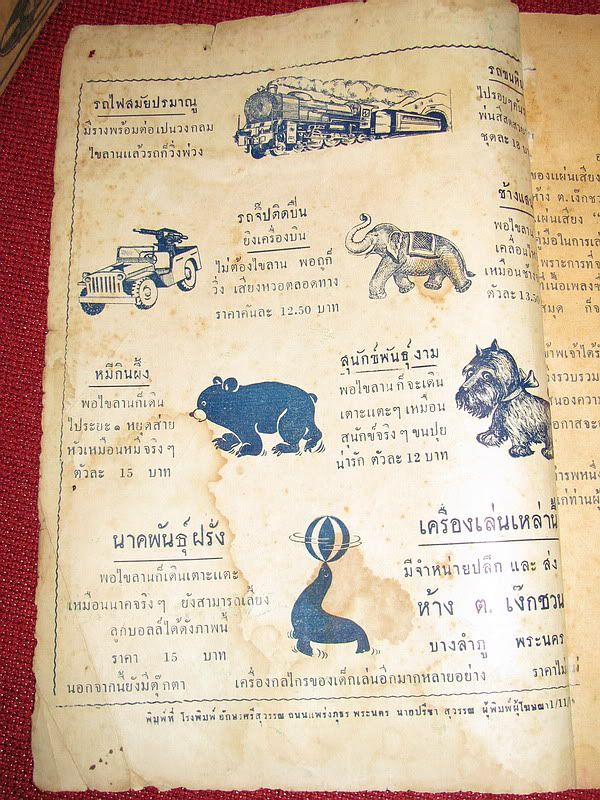 รถไฟสมัยปรมาณู
มีรางพร้อมต่อเปนวงกลม
ไขลานแล้วรถก็วิ่งพ่วง
รถขนดิน
ชุดละ 18
รถจี๊ปติดปืน
ยิงเครื่องบิน
ไม่ต้องไขลาน พอถูก็
วิ่ง เสียงหวอตลอดทาง
ราคาคันละ 12.50 บาท
พอไขลาน
เคลื่อนไห
เหมือนช้าง
ตัวละ 13.50
หมีกินผึ้ง
พอไขลานก็เดิน
ไประยะ ๑ หยุดส่าย
หัวเหมือนหมีจริง ๆ
ตัวละ 15 บาท
สุนักข์พันธุ์งาม
พอไขลานก็จะเดิน
เตาะแตะๆ เหมือน
สุนักข์จริง ๆ ขนปุย
น่ารัก ตัวละ 12 บาท
นาคพันธุ์ฝรั่ง
พอไขลานก็เดินเตาะแตะ
เหมือนนาคจริงๆ ยังสามารถเลี้ยง
ลูกบอลล์ได้ดั่งภาพนี้
ราคา 15 บาท
เครื่องเล่นเหล่านี้
มีจำหน่ายปลีก และ ส่ง
ห้าง ต. เง๊กชวน
บางลำภู พระนคร
นอกจากนี้ยังมีตุ๊กตา เครื่องกลไกรของเด็กเล่นอีกมากหลายอย่าง ราคาไม่
พิมพ์ที่ โรงพิมพ์ อักษรศรีสุวรรณ ถนนแพร่งภูธร พระนคร นายปรีชา สุวรรณ ผู้พิมพ์ผู้โฆษณา 1/11/
ของแผ่นเสียง
ห้าง ต.เง๊กชว
แผ่นเสียง
เนื้อเพลงซ